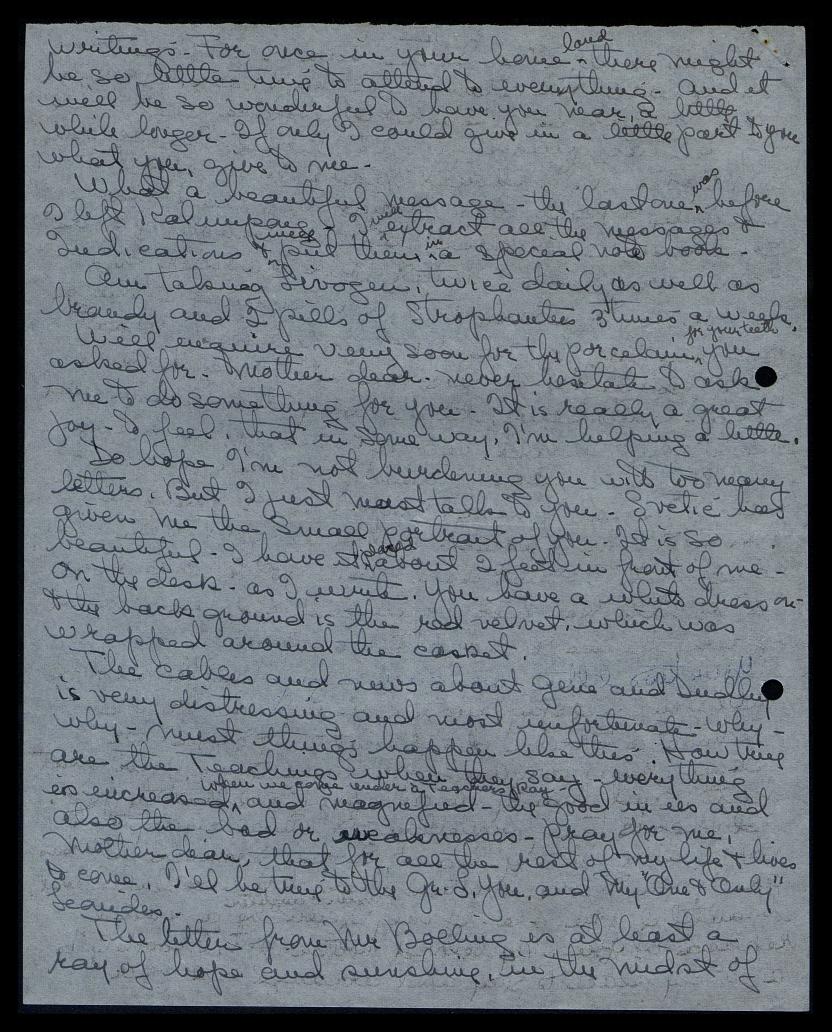 writings - For once in your home land - there might
be so little time to attend to everything - and it
will be so wonderful to have you near, a little
while longer - If only I could give in a little part to you
what you, give to me -
What a beautiful message - the last one was before
I left Kalimpong - I will extract all the messages &
Indications & put them in a special note book -
Am taking Livogen, twice daily as well as
brandy and 2 pills of Strophantus 3 times a week.
Will enquire very soon for the porcelain for your teeth you
asked for - Mother dear - never hesitate to ask
me to do something for you - It is really a great
joy - to feel, that in some way, I'm helping a little.
Do hope I'm not burdening you with too many
letters. But I just must talk to you - Svetic has
given me the small portrait of you - It is so
beautiful - I have it placed about 2 feet in front of me -
on the desk - as I write. You have a white dress on -
& the back ground is the red velvet, which was
wrapped around the casket.
The cables and news about Gene and Dudley
is very distressing and most unfortunate - Why -
why - must things happen like this. How true
are the Teachings when they say - everything
is increased when we come under a Teachers Ray - and magnified - the good in us and
also the bad or weaknesses - Pray for me,
Mother dear, that for all the rest of my life & lives
to come, I'll be true to the Gr. L, You, and My "One & Only"
The letter from Mr Bolling is at least a
ray of hope and sunshine, in the midst of